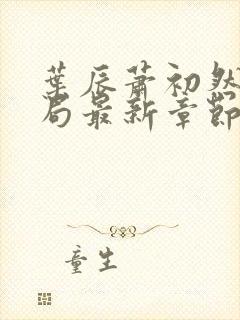 葉辰蕭初然
局最新章節
童生